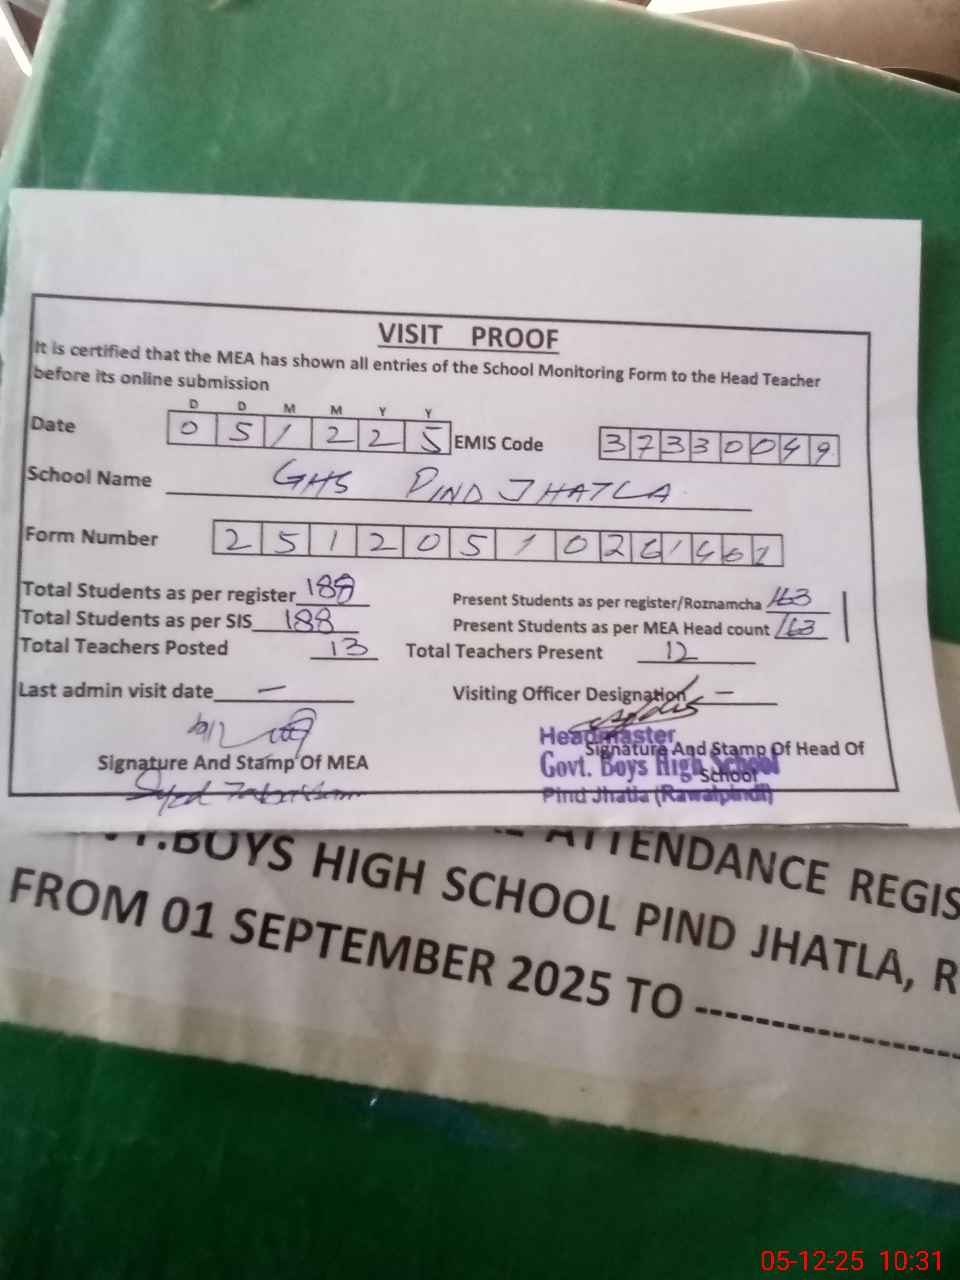 VISIT PROOF
It is certified that the MEA has shown all entries of the School Monitoring Form to the Head Teacher
before its online submission
D D M M Y Y
Date 0 5 1 2 2 5 EMIS Code 3 7 3 3 0 0 4 9
School Name GHS PIND JHATLA
Form Number 2 5 1 2 0 5 1 0 2 6 1
Total Students as per register 188 Present Students as per register/Roznamcha 163
Total Students as per SIS 188 Present Students as per MEA Head count 163
Total Teachers Posted 13 Total Teachers Present 12
Last admin visit date — Visiting Officer Designation —
Signature And Stamp Of MEA
Signature And Stamp Of Head Of
School
Syed
Headmaster
Govt. Boys High School
Pind Jhatla (Rawalpindi)
ATTENDANCE REGIS
T.BOYS HIGH SCHOOL PIND JHATLA, R
FROM 01 SEPTEMBER 2025 TO -----------------
05-12-25 10:31